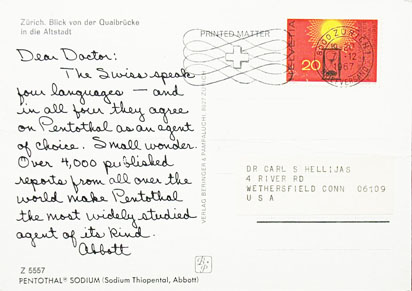 Zürich. Blick von der Quaibrücke
in die Altstadt
PRINTED MATTER
HELVETIA
20
8000 ZÜRICH 1
1967
Dear Doctor:
The Swiss speak
four languages — and
in all four they agree
on Pentothal as an agent
of choice. Small wonder.
Over 4,000 published
reports from all over the
world make Pentothal
the most widely studied
agent of its kind.
Abbott
VERLAG BERINGER & PAMPALUCHI, 8027 ZÜRICH
DR CARL S HELLIJAS
4 RIVER RD
WETHERSFIELD CONN 06109
U S A
Z 5557
PENTOTHAL® SODIUM (Sodium Thiopental, Abbott)